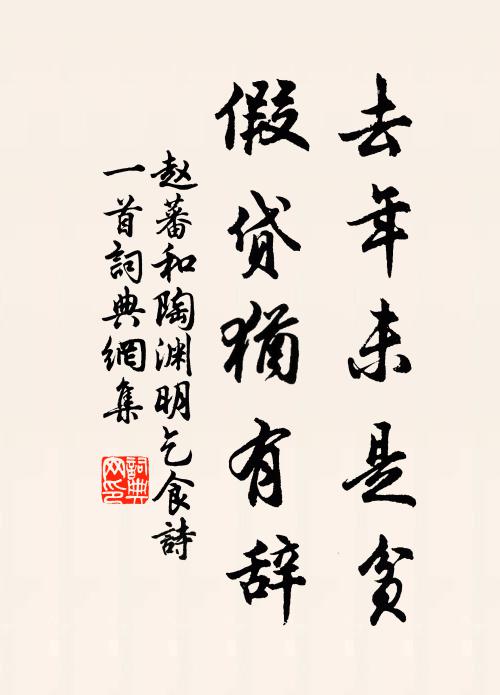 去年未是贫
假贷犹有辞
赵蕃和陶渊明乞食詩
一首詞典網集
詞典
网印